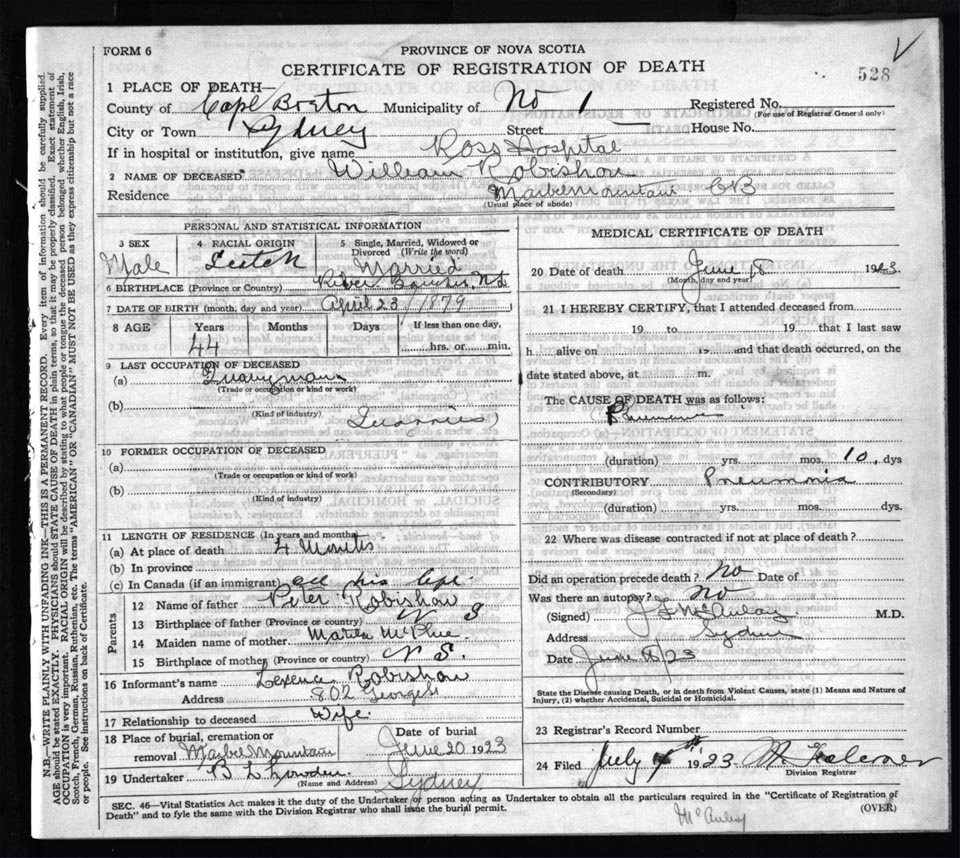 FORM 6
PROVINCE OF NOVA SCOTIA
CERTIFICATE OF REGISTRATION OF DEATH
528
1 PLACE OF DEATH—
County of Cape Breton Municipality of No 1 Registered No.
(For use of Registrar General only)
City or Town Sydney Street — House No.
If in hospital or institution, give name Ross Hospital
2 NAME OF DECEASED William Robishaw
Residence Marble Mountain CB
(Usual place of abode)
PERSONAL AND STATISTICAL INFORMATION
3 SEX
Male
4 RACIAL ORIGIN
5 Single, Married, Widowed or Divorced (Write the word)
Married
6 BIRTHPLACE (Province or Country) River N.S.
7 DATE OF BIRTH (month, day and year) April 23 / 1879
8 AGE Years Months Days If less than one day,
44 hrs. or min.
9 LAST OCCUPATION OF DECEASED
(a) Quarryman
(Trade or occupation or kind of work)
(b) Quarries
(Kind of industry)
10 FORMER OCCUPATION OF DECEASED
(a)
(Trade or occupation or kind of work)
(b)
(Kind of industry)
11 LENGTH OF RESIDENCE (In years and months)
(a) At place of death 4 Months
(b) In province
(c) In Canada (if an immigrant) all his life
Parents
12 Name of father Peter Robishaw
13 Birthplace of father (Province or country) N S
14 Maiden name of mother
15 Birthplace of mother (Province or country) N S.
16 Informant's name Lexena Robishaw
Address 802 George St
17 Relationship to deceased Wife.
18 Place of burial, cremation or removal Marble Mountain
Date of burial June 20 1923
19 Undertaker Sydney
(Name and Address)
MEDICAL CERTIFICATE OF DEATH
20 Date of death June 18 1923.
(Month, day and year)
21 I HEREBY CERTIFY, that I attended deceased from
19 to 19 that I last saw
h alive on and that death occurred, on the
date stated above, at m.
The CAUSE OF DEATH was as follows:
(duration) yrs. mos. 10. dys
CONTRIBUTORY Pneumonia
(Secondary)
(duration) yrs. mos. dys.
22 Where was disease contracted if not at place of death?
Did an operation precede death? No Date of
Was there an autopsy? No
(Signed) McAulay M.D.
Address Sydney
Date June 18/23
State the Disease causing Death, or in death from Violent Causes, state (1) Means and Nature of Injury, (2) whether Accidental, Suicidal or Homicidal.
23 Registrar's Record Number
24 Filed July 1923
Division Registrar
SEC. 46—Vital Statistics Act makes it the duty of the Undertaker or person acting as Undertaker to obtain all the particulars required in the "Certificate of Registration of
Death" and to fyle the same with the Division Registrar who shall issue the burial permit.
(OVER)
McAulay
N.B.—WRITE PLAINLY WITH UNFADING INK—THIS IS A PERMANENT RECORD. Every item of information should be carefully supplied.
AGE should be stated EXACTLY. PHYSICIANS should STATE CAUSE OF DEATH in plain terms, so that it may be properly classified. Exact statement of
OCCUPATION is very important. RACIAL ORIGIN will be described by stating to what people or tongue the deceased person belonged, whether English, Irish,
Scotch, French, German, Russian, Ruthenian, etc. The terms "AMERICAN" OR "CANADIAN" MUST NOT BE USED as they express citizenship but not a race
or people. See instructions on back of Certificate.